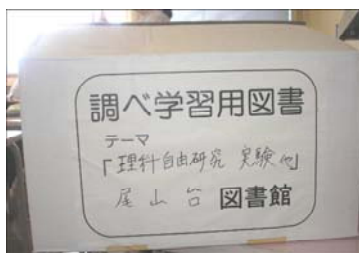 調べ学習用図書
テーマ
「理科自由研究 実験他」
尾山台 図書館